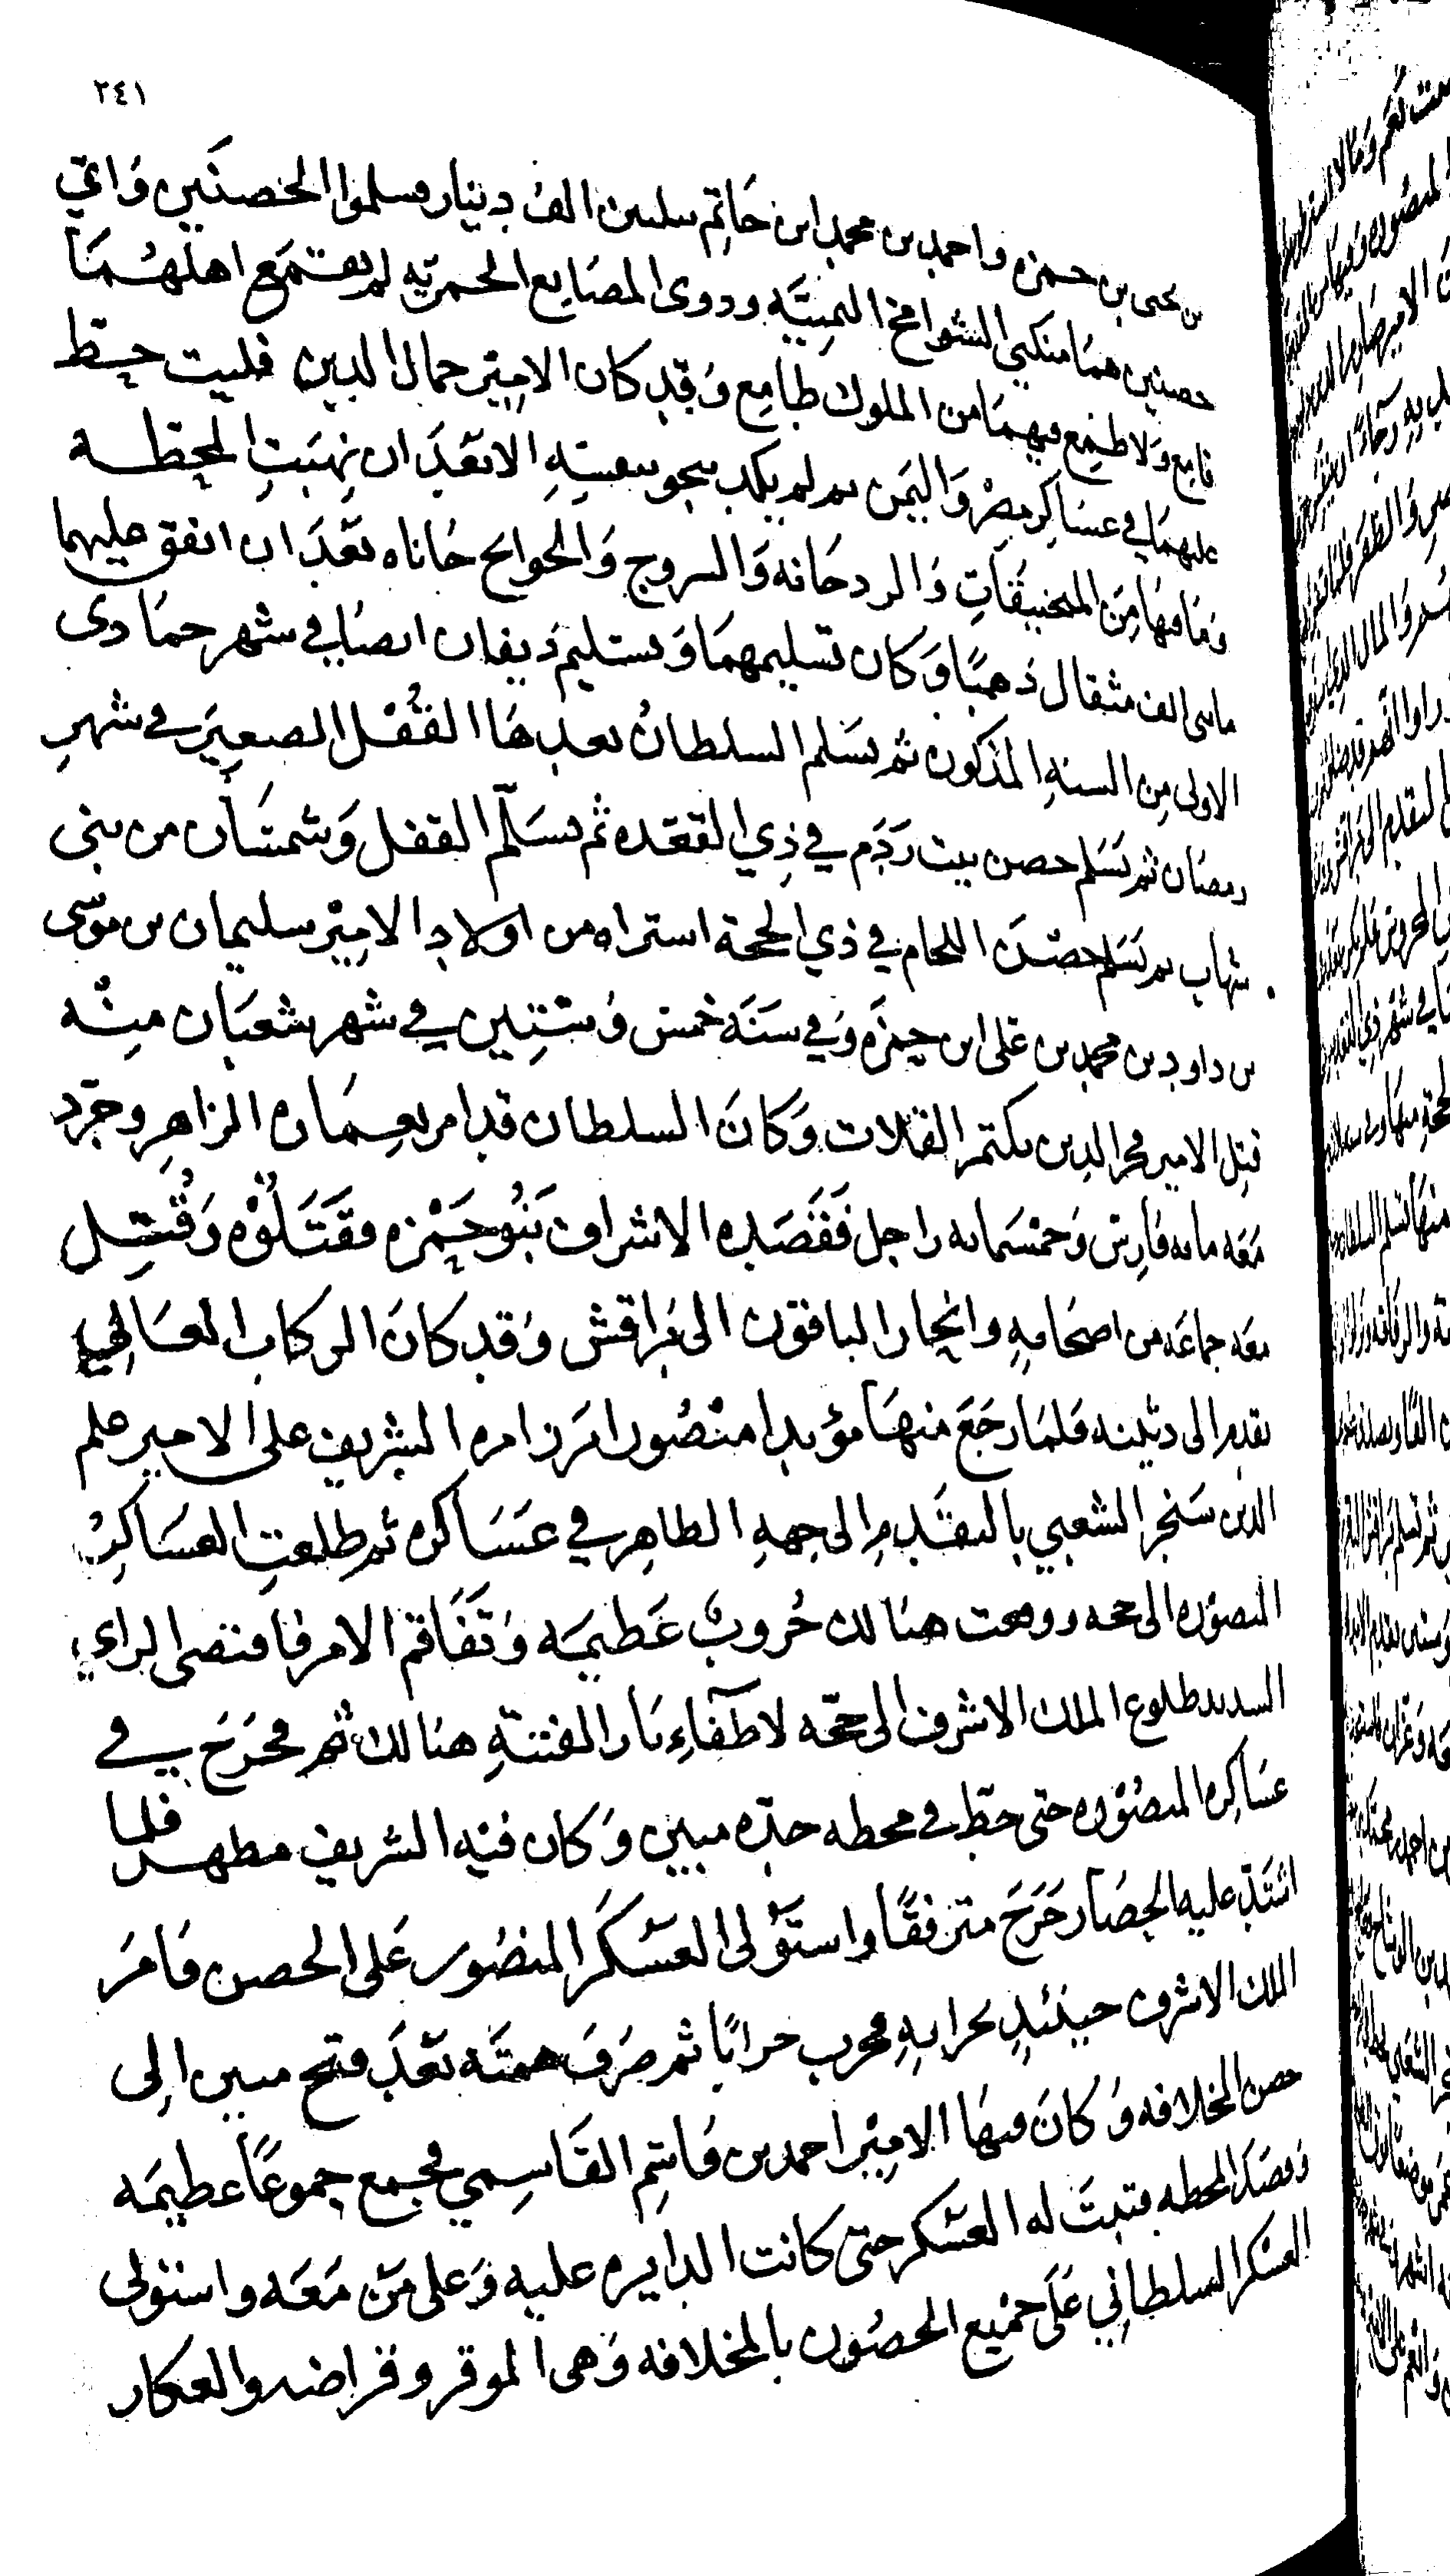 ٢٤١
بن يحيى بن حمزه واحمد بن محمد ابن حاتم سلسن الف دينار فسلموا الحصنين وَاي
حصنين هما منكبي الشوامخ اليمنيَّه وذوى المصَانع الحميريّه لم يقمَع اهلهُمَا
قامع وَلا طمع فيهمَا من الملوك طامِع وَقد كان الامِيْر جمال الدين فليت حط
عليهمَا في عسَاكِر مِصْر وَاليمَن ثم لم يكد ينجو بنفسِهِ الا بَعْدَ ان نهبَتِ المحطه
وَمَا فيهَا مِنَ المنجنيقاتِ وَالزردخانه وَالسروج وَالحوايج خاناه بَعْدَ ان انفق عليهما
مايتى الف مثقال ذهبًا وَكان تسليمهمَا وَتسليم ذيفان ايضًا في شهر جمَادى
الاولى مِن السنهِ المذكوره ثم تسَلم السلطانُ بعدهَا القفْل الصغِيَر في شهرِ
رمضان ثم تسَلم حصن بيت رَدَم في ذِي القعْده ثم تسَلّم القفل وَشمسَان من بنى
شهاب ثم تسَلم حصْن اللحام في ذي الحجة استراه من اولاد الامِيْر سليمان بن موسى
بن داود بن محمد بن عَلى ابن حمزَه وَفي سنَة خمس وَستِين في شهر شعبَان منْه
قتِل الامير فخر الدين بكتمر القلات وَكانَ السلطان قد امر بعِمَارة الزاهِر وجرّد
مَعَه مايه فارِس وَخمسمايه راجل فقَصَده الاشراف بَنُو حَمْزه فقَتَلُوْه وَقُتِل
معَه جماعَه من اصحَابهِ وانحَاز الباقون الى بَراقش وَقد كانَ الركاب العَالي
تقدم الى دثينه فلمَا رجَعَ منهَا مؤيدا منْصُورا بَرز امره الشريف على الامير علم
الدين سَنجر الشعبي بالتقدمِ الى جهةِ الظاهِر في عسَاكره ثم طلعتِ العسَاكرُ
المنصوره الى حجه ووقعت هنالك حُروبٌ عَظيمَه وَتفَاقم الامر فاقتضى الراي
السديد طلوع الملك الاشرف الى حجّه لاطفاءِ نَار الفتنةِ هنالك ثم فخرَجَ في
عسَاكِره المنصُوره حتى حطّ في محطه حدّه مبين وَكان فيه الشريف مطهر فلما
اشتدّ عليه الحصَار خَرَجَ مترفقًا واستوْلى العسْكَر المنصُور عَلى الحصن فَامَر
الملك الاشرف حينئِدٍ بخرابهِ فخرب خرابًا ثم صَرَفَ همتَه بَعْدَ فتح مبين الِى
حصن المخلافه وَكانَ فيهَا الامِيْر احمد بن قاسِم القَاسِمي فجمع جموعًا عظيمَه
وَقصَد المحطه فثبتَ له العسْكر حتى كانت الدايره عليه وَعلى مَنْ مَعَه واستولى
العسكر السلطاني عَلى جميْع الحصُون بالمخلافه وَهى الموقر وقراضه والعكار